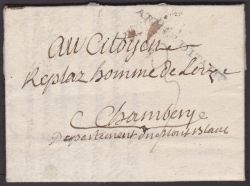 au Citoyen
Replaz homme de Loix
a Chambery
Departement du Mont Blanc